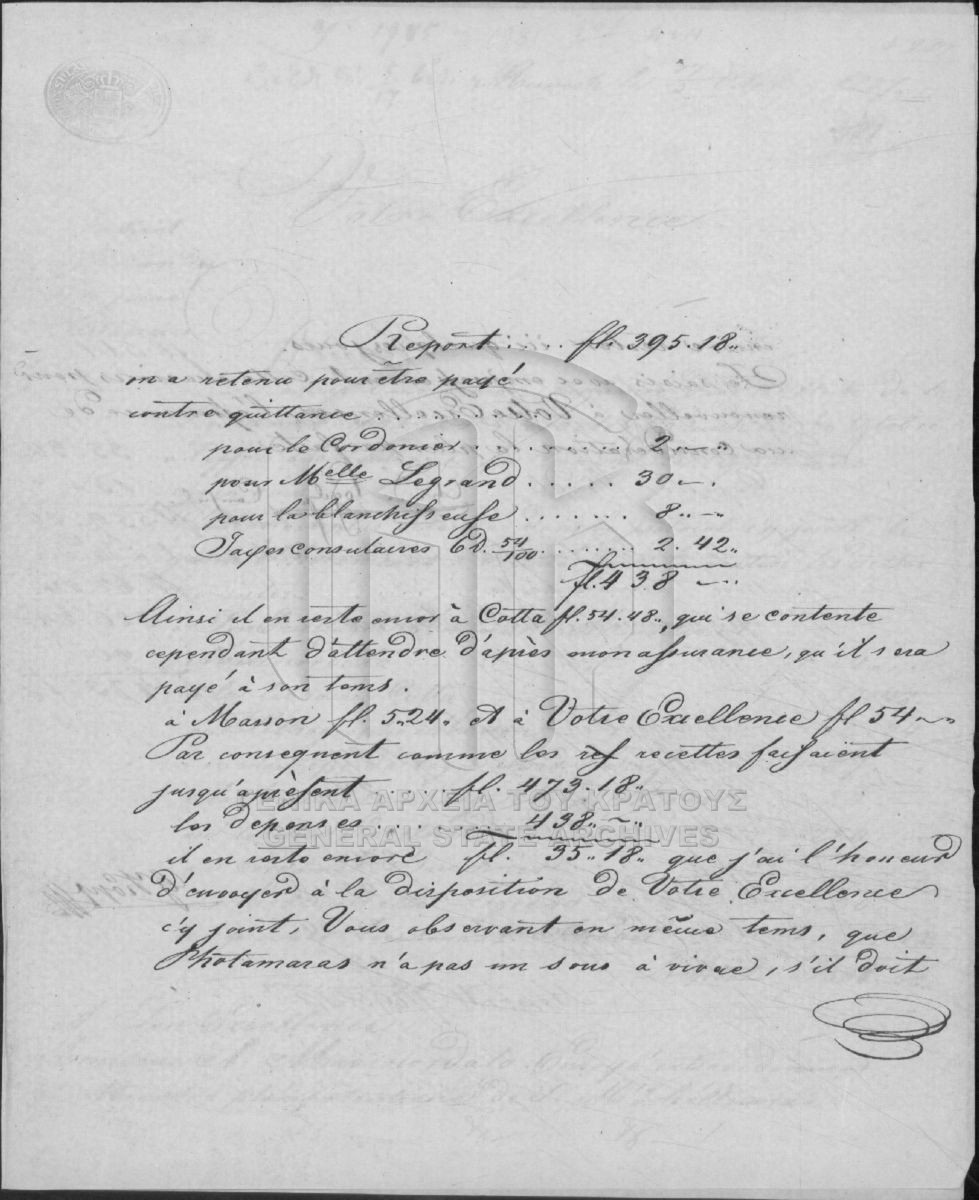 Report . . . . fl. 395. 18„
m'a retenu pour être payé
contre quittance . . . .
pour le Cordonier . . . . . . . . . 2 — „
pour Melle Legrand . . . . . . 30 — .
pour la blanchisseuse . . . . . . . 8„ — „
Taxes consulaires 6 d. 54/100 . . . . . . . . 2. 42„
fl. 438 — „
Ainsi il en reste encor à Cotta fl. 54. 48„, qui se contente
cependant d'attendre d'après mon assurance, qu'il sera
payé à son tems.
à Masson fl. 5„ 24„ et à Votre Excellence fl 54 „ — „
Par conséquent comme les recettes faisaient
jusqu'àprésent . . . . fl. 473. 18„
les depenses . . . . 438„ — „
il en reste encore fl. 35„ 18„ que j'ai l'honeur
d'envoyer à la disposition de Votre Excellence
c'y joint, Vous observant en même tems, que
Photamaras n'a pas un sous à vivre, s'il doit
ΓΕΝΙΚΑ ΑΡΧΕΙΑ ΤΟΥ ΚΡΑΤΟΥΣ
GENERAL STATE ARCHIVES